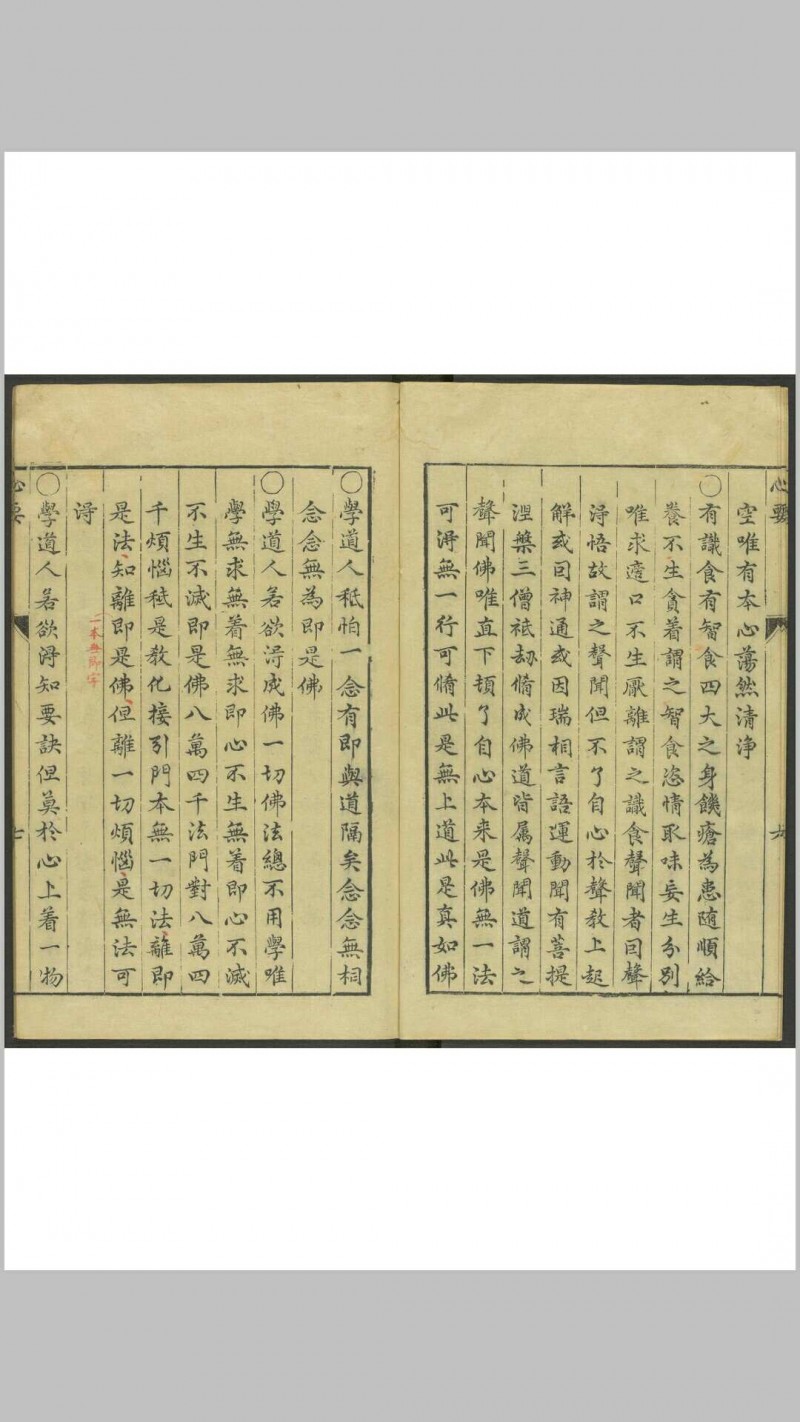 空唯有本心蕩然清浄
○有識食有智食四大之身饑瘡為患随順給
養不生貪着謂之智食恣情取味妄生分別
唯求適口不生厭離謂之識食聲聞者因聲
淂悟故謂之聲聞但不了自心於聲教上起
解或因神通或因瑞相言語運動聞有菩提
涅槃三僧祗劫脩成佛道皆属聲聞道謂之
聲聞佛唯直下頓了自心本来是佛無一法
可淂無一行可脩此是無上道此是真如佛
心要
九
○學道人秖怕一念有即與道隔矣念念無相
念念無為即是佛
○學道人若欲淂成佛一切佛法總不用學唯
學無求無着無求即心不生無着即心不滅
不生不滅即是佛八萬四千法門對八萬四
千煩惱秖是教化接引門本無一切法離即
是法知離即是佛但離一切煩惱是無法可
淂
一本無即字
○學道人若欲淂知要訣但莫於心上着一物
心要
七